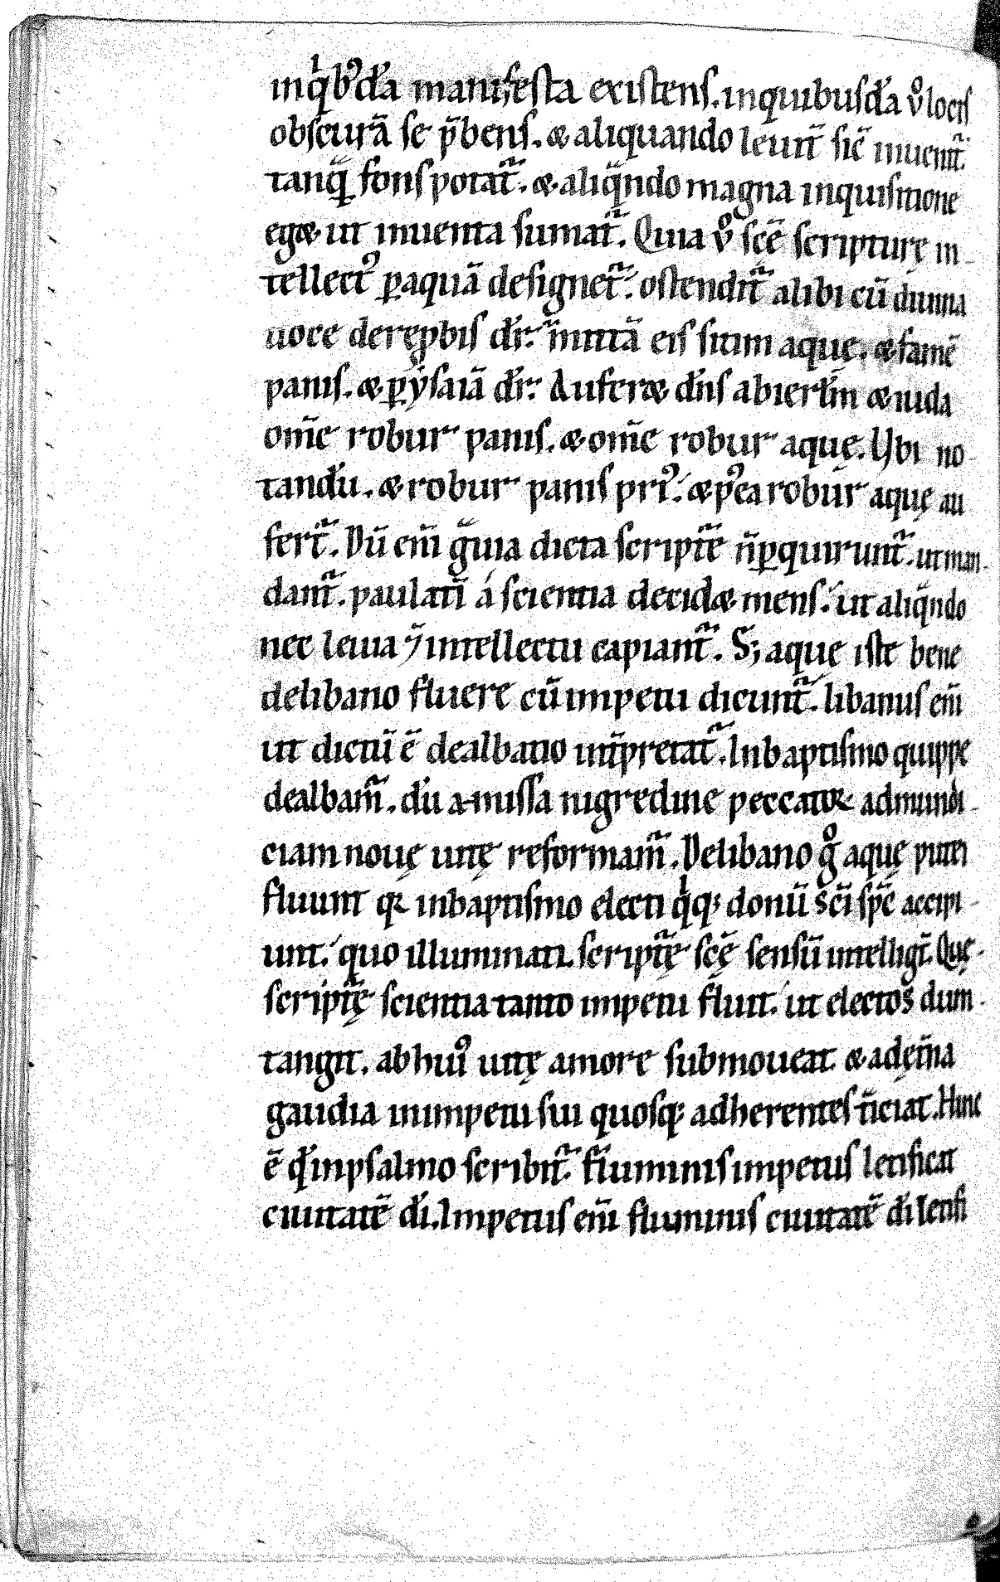 in q̇bꝰdā manifesta existens. in quibusdā ů locis
obscurā se p̄bens. & aliquando leuit̄ sic̄ inuenit᷑
tanq̄ fons potat᷑. & aliq̄ndo magna inquisitione
eg& ut inuenta sumat᷑. Quia ů scē scripturę in
tellectꝰ ꝑ aquā designet᷑. ostendit᷑ alibi cū diuina
uoce de rep̄bis dr̄. īmittā eis sitim aquę. & famē
panis. & ꝑ ysaiā dr̄. Aufer& dn̄s ab ierlm̄ & iuda
om̄e robur panis. & om̄e robur aquę. Vbi no
tandū. & robur panis priꝰ. & pꝰea robur aquę au
fert᷑. Dū eni̅ g̃uia dicta script᷑e n̄ ꝑquirunt᷑. ut man
dant᷑. paulati̅ á scientia decid& mens. ut aliq̄ndo
nec leuia ⁊ intellectu capiant᷑. S; aque iste bene
de libano fluere cū impetu dicunt᷑. libanus eni̅
ut dictū ē dealbatio int̄pretat᷑. In baptismo quippe
dealbam᷑. dū amissa nigredine peccatoꝝ ad mundi
ciam nouę uitę reformam᷑. De libano g̊ aquę putei
fluunt qꝛ in baptismo electi q̇qꝫ donū sc̄i sp̄c accipi
unt. quo illuminati. script᷑ę scę̄ sensū intelligt̄. Quę
script᷑ę scientia tanto impetu fluit. ut electos dum
tangit. ab huiꝰ uitę amore submoueat & ad ęt̄na
gaudia in impetu sui quosqꝫ adherentes t̄iciat. Hinc
ē qd̄ in psalmo scribit᷑. fluminis impetus letificat
ciuitatē di̅. Impetus eni̅ fluminis ciuitatē di̅ letifi